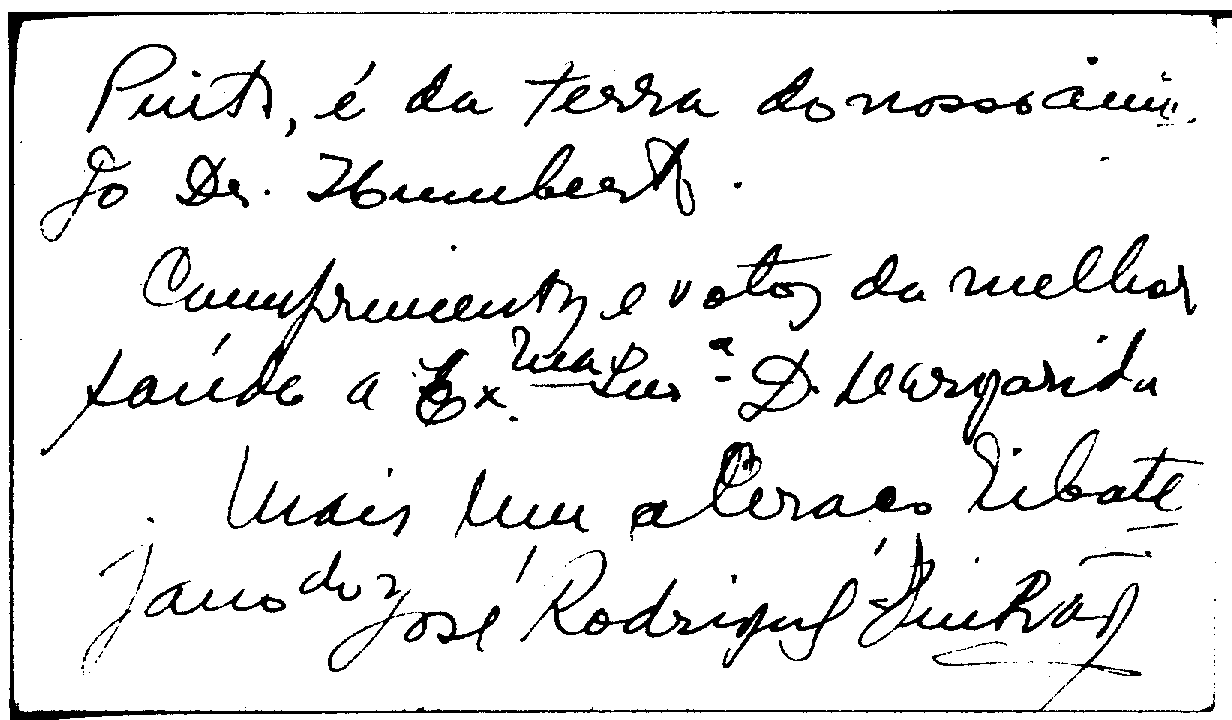 Pinto, é da terra do nosso ami-
go Dr. Humberto.
Cumprimentos e votos da melhor
saúde a Ex.ma Sr.ª D. Margarida
Mais um abraço Ribate
jano do José Rodrigues